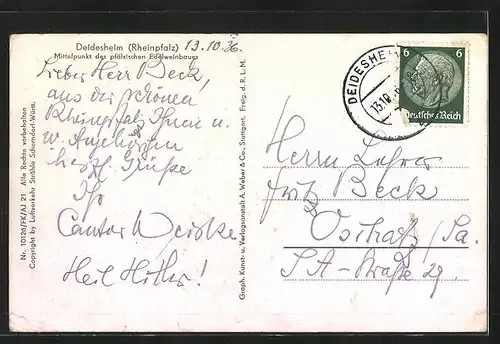 Deidesheim (Rheinpfalz) 13.10.36.
Mittelpunkt des pfälzischen Edelweinbaues
Lieber Herr Beck,
aus der schönen
Rheinpfalz Ihnen u.
w. Angehörigen
herzl. Grüße
Ihr
Cantor
Heil Hitler!
Nr. 10126/FK/AJ 21 Alle Rechte vorbehalten
Copyright by Luftverkehr Strähle Schorndorf-Württ.
Graph. Kunst- u. Verlagsanstalt A. Weber & Co., Stuttgart. Freig. d. R. L. M.
DEIDESHE
13.10.
6 6
Deutsches Reich
Herrn Lehrer
Fritz Beck
Oschatz/Sa.
SA-Straße 29.